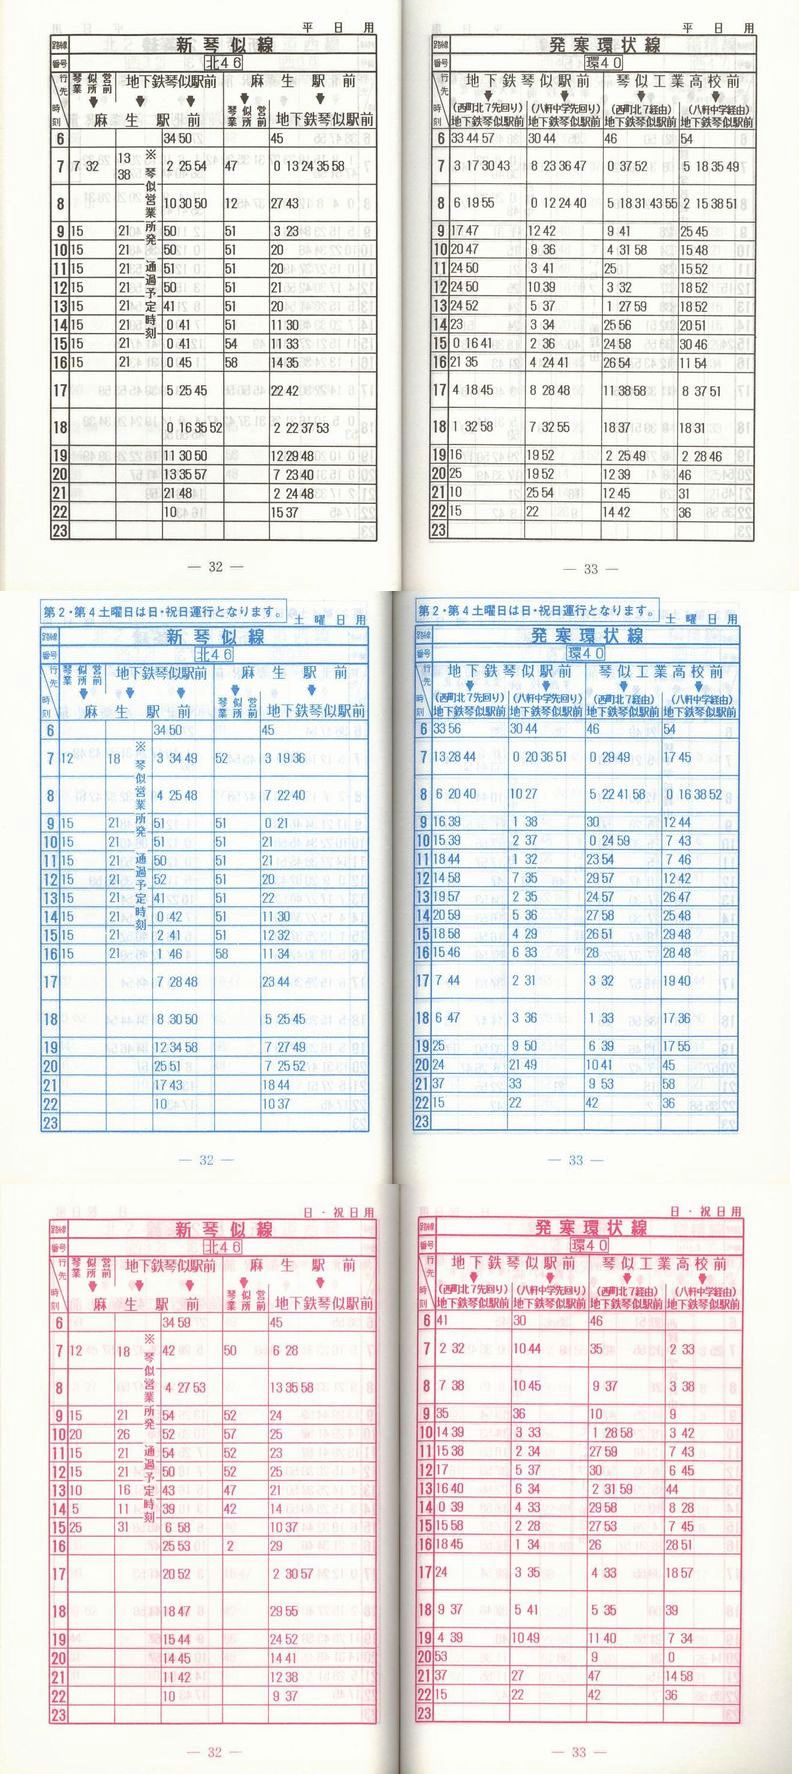 平日用
路線 新琴似線
番号 北46
行先 琴似営業所前 地下鉄琴似駅前 麻生駅前
時刻 麻生駅前 琴似営業所前 地下鉄琴似駅前
※琴似営業所発 通過予定時刻
6 34 50 45
7 7 32 13 38 2 25 54 47 0 13 24 35 58
8 10 30 50 12 27 43
9 15 21 50 51 3 23
10 15 21 50 51 20
11 15 21 51 51 20
12 15 21 50 51 21
13 15 21 41 51 20
14 15 21 0 41 51 11 30
15 15 21 0 41 54 11 33
16 15 21 0 45 58 14 35
17 5 25 45 22 42
18 0 16 35 52 2 22 37 53
19 11 30 50 12 29 48
20 13 35 57 7 23 40
21 21 48 2 24 48
22 10 15 37
23
— 32 —
平日用
路線 発寒環状線
番号 環40
行先 地下鉄琴似駅前 琴似工業高校前
(西町北7先回り) (八軒中学先回り) (西町北7経由) (八軒中学経由)
時刻 地下鉄琴似駅前 地下鉄琴似駅前 地下鉄琴似駅前 地下鉄琴似駅前
6 33 44 57 30 44 46 54
7 3 17 30 43 8 23 36 47 0 37 52 5 18 35 49
8 6 19 55 0 12 24 40 5 18 31 43 55 2 15 38 51
9 17 47 12 42 9 41 25 45
10 20 47 9 36 4 31 58 15 48
11 24 50 3 41 25 15 52
12 24 50 10 39 3 32 18 52
13 24 52 5 37 1 27 59 18 52
14 23 3 34 25 56 20 51
15 0 16 41 2 36 24 58 30 46
16 21 35 4 24 41 26 54 11 54
17 4 18 45 8 28 48 11 38 58 8 37 51
18 1 32 58 7 32 55 18 37 18 31
19 16 19 52 2 25 49 2 28 46
20 25 19 52 12 39 46
21 10 25 54 12 45 31
22 15 22 14 42 36
23
— 33 —
第2・第4土曜日は日・祝日運行となります。
土曜日用
路線 新琴似線
番号 北46
行先 琴似営業所前 地下鉄琴似駅前 麻生駅前
時刻 麻生駅前 琴似営業所前 地下鉄琴似駅前
※琴似営業所発 通過予定時刻
6 34 50 45
7 12 18 3 34 49 52 3 19 36
8 4 25 48 7 22 40
9 15 21 51 51 0 21
10 15 21 51 51 21
11 15 21 50 51 21
12 15 21 52 51 20
13 15 21 41 51 22
14 15 21 0 42 51 11 30
15 15 21 2 41 51 12 32
16 15 21 1 46 58 11 34
17 7 28 48 23 44
18 8 30 50 5 25 45
19 12 34 58 7 27 49
20 25 51 7 25 52
21 17 43 18 44
22 10 10 37
23
— 32 —
第2・第4土曜日は日・祝日運行となります。
土曜日用
路線 発寒環状線
番号 環40
行先 地下鉄琴似駅前 琴似工業高校前
(西町北7先回り) (八軒中学先回り) (西町北7経由) (八軒中学経由)
時刻 地下鉄琴似駅前 地下鉄琴似駅前 地下鉄琴似駅前 地下鉄琴似駅前
6 33 56 30 44 46 54
7 13 28 44 0 20 36 51 0 29 49 17 45
8 6 20 40 10 27 5 22 41 58 0 16 38 52
9 16 39 1 38 30 12 44
10 15 39 2 37 0 24 59 7 43
11 18 44 1 32 23 54 7 46
12 14 58 7 35 29 57 12 42
13 19 57 2 35 24 57 26 47
14 20 59 5 36 27 58 25 48
15 18 58 4 29 26 51 29 48
16 15 46 6 33 28 28 48
17 7 44 2 31 3 32 19 40
18 6 47 3 36 1 33 17 36
19 25 9 50 6 39 17 55
20 24 21 49 10 41 45
21 37 33 9 53 58
22 15 22 42 36
23
— 33 —
日・祝日用
路線 新琴似線
番号 北46
行先 琴似営業所前 地下鉄琴似駅前 麻生駅前
時刻 麻生駅前 琴似営業所前 地下鉄琴似駅前
※琴似営業所発 通過予定時刻
6 34 59 45
7 12 18 42 50 6 28
8 4 27 53 13 35 58
9 15 21 54 52 24
10 20 26 52 57 25
11 15 21 54 52 23
12 15 21 50 52 25
13 10 16 43 47 21
14 5 11 39 42 14
15 25 31 6 58 10 37
16 25 53 2 29
17 20 52 2 30 57
18 18 47 29 55
19 15 44 24 52
20 14 45 14 41
21 11 42 12 38
22 10 9 37
23
— 32 —
日・祝日用
路線 発寒環状線
番号 環40
行先 地下鉄琴似駅前 琴似工業高校前
(西町北7先回り) (八軒中学先回り) (西町北7経由) (八軒中学経由)
時刻 地下鉄琴似駅前 地下鉄琴似駅前 地下鉄琴似駅前 地下鉄琴似駅前
6 41 30 46
7 2 32 10 44 35 2 33
8 7 38 10 45 9 37 3 38
9 35 36 10 9
10 14 39 3 33 1 28 58 3 42
11 15 38 2 34 27 59 7 43
12 17 5 37 30 6 45
13 16 40 6 34 2 31 59 44
14 0 39 4 33 29 58 8 28
15 15 58 2 28 27 53 7 45
16 18 45 1 34 26 28 51
17 24 3 35 4 33 18 57
18 9 37 5 41 5 35 39
19 4 39 10 49 11 40 7 34
20 53 9 0
21 37 27 47 14 58
22 15 22 42 36
23
— 33 —